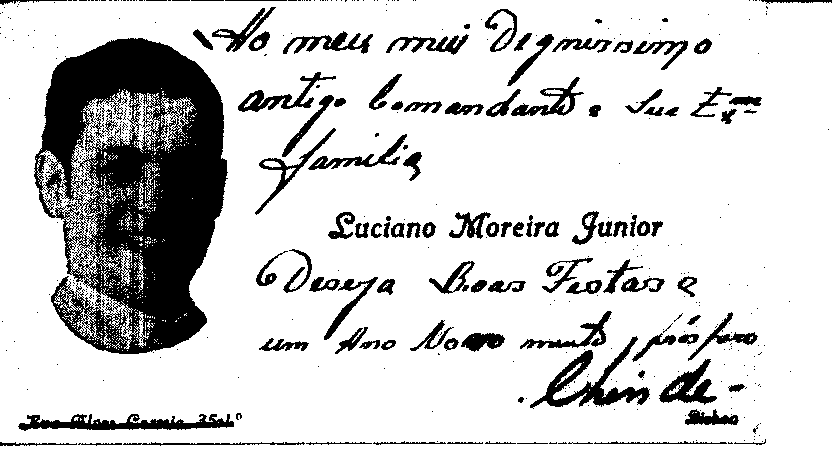 Ao meu mui Dignissimo
antigo Comandante e Sua Exma
familia
Luciano Moreira Junior
Deseja Boas Festas e
um Ano Novo muito prospero
Lisboa